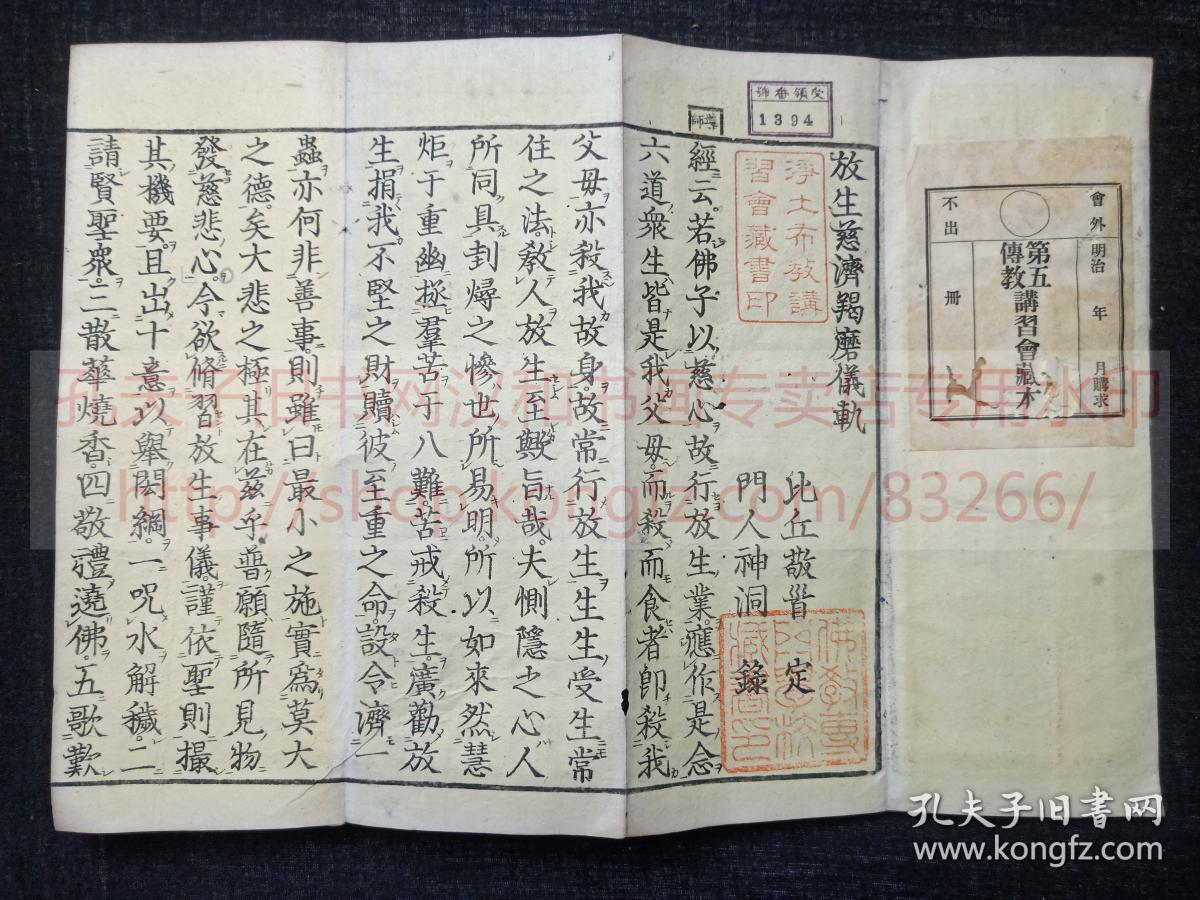 會外
不出
明治 年 月購求
第五
傳教
講習會藏本
冊
受領番號
1394
導師
放生慈濟羯磨儀軌
淨土布教講
習會藏書印
比丘敬首 定
門人神洞 錄
佛教專
門學校
藏書印
經云若佛子以慈心故行放生業應作是念
六道衆生皆是我父母而殺而食者即殺我
父母亦殺我故身故常行放生生生受生常
住之法教人放生至輿旨哉夫惻隱之心人
所同具刲燖之慘也所易明所以如來然慧
炬于重幽拯羣苦于八難苦戒殺生廣勸放
生捐我不堅之財贖彼至重之命設令濟一
蟲亦何非善事則雖曰最小之施實爲莫大
之德矣大悲之極其在茲乎普願隨所見物
發慈悲心今欲脩習放生事儀謹依聖則撮
其機要且出十意以舉閎綱一呪水解穢二
請賢聖衆三散華燒香四敬禮澆佛五歌歎
孔夫子旧书网汉和书画专卖店专用水印
http://shop.kongfz.com/83266/
孔夫子旧书网
www.kongfz.com